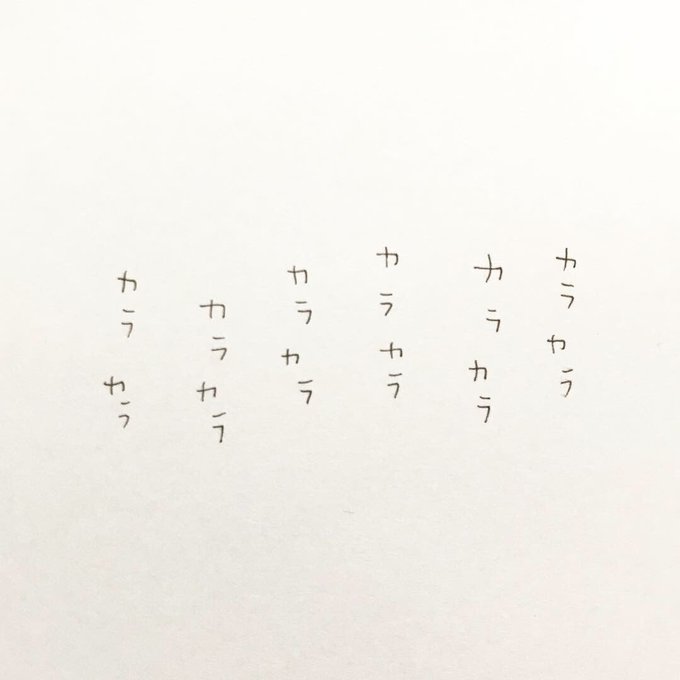 カラカラ
カラカラ
カラカラ
カラカラ
カラカラ
カラカラ